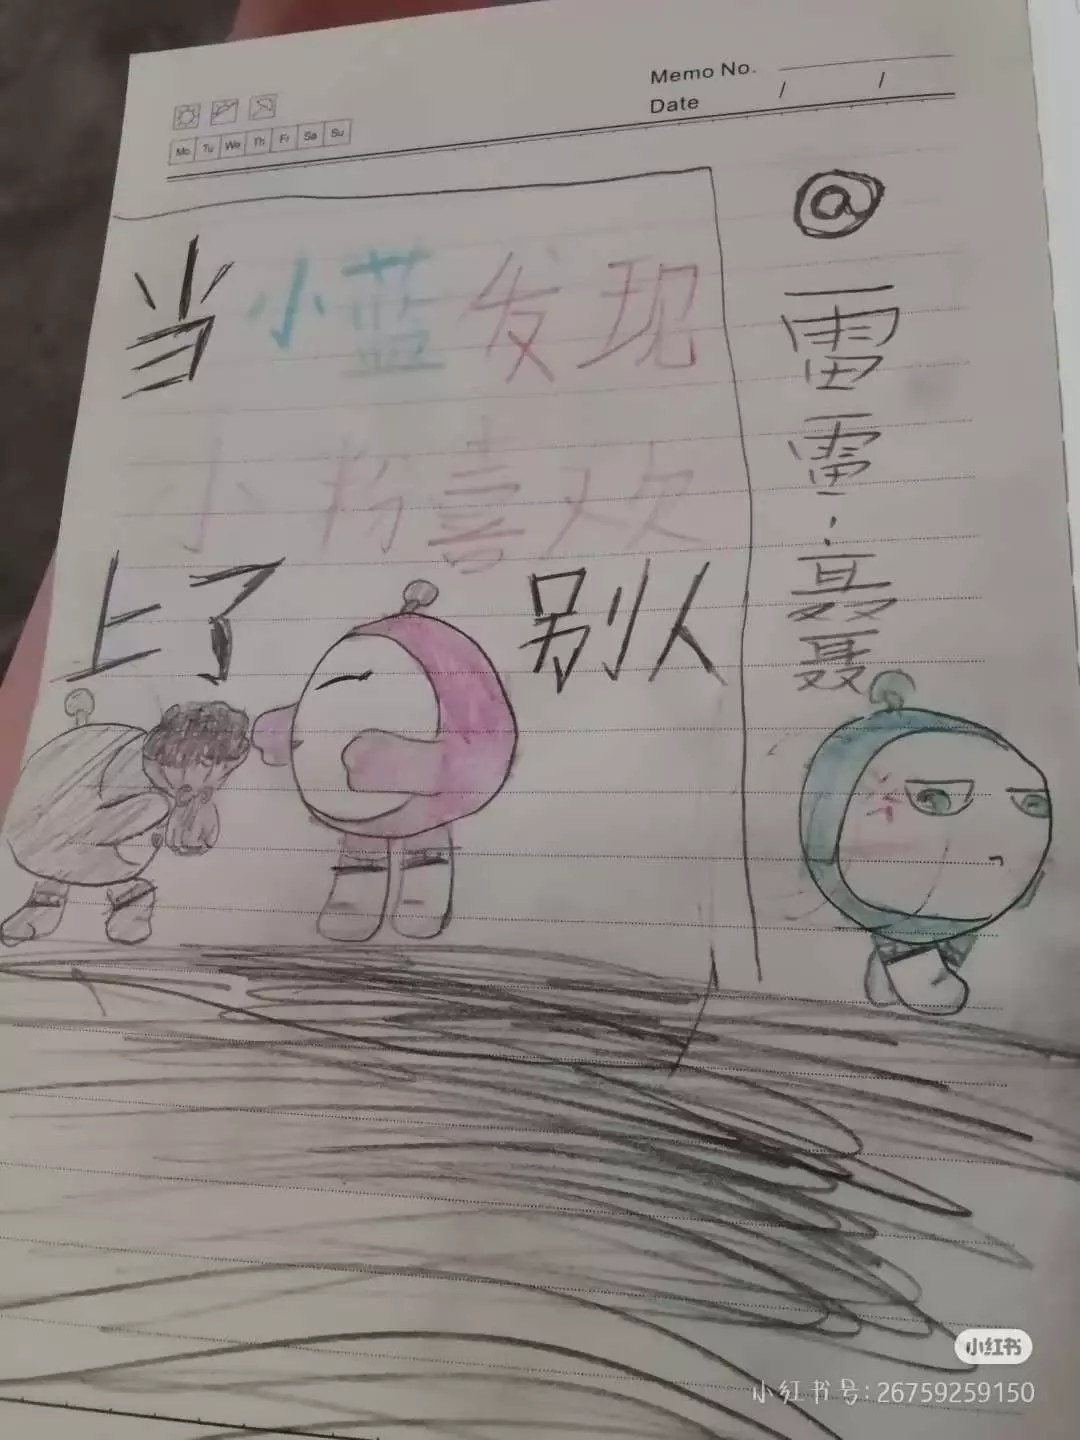 Memo No.
Date / /
Mo Tu We Th Fr Sa Su
当小蓝发现
小粉喜欢
上了 别人
@
雷
雷
小红书
小红书号:26759259150